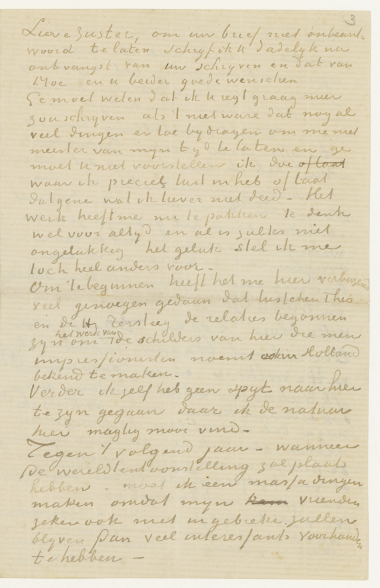 3
Lieve zuster, om uw brief niet onbeant-
woord te laten schryf ik U dadelyk na
ontvangst van uw schryven en dat van
Moe en u beider goede wenschen
Ge moet weten dat ik U regt graag meer
zou schryven als 't niet ware dat nog al
veel dingen er toe bydragen om me niet
meester van myn tyd te laten en ge
moet U niet voorstellen ik doe oftewel
waar ik precies lust in heb oftewel
datgene wat ik liever niet deed. Het
werk heeft me nu te pakken ik denk
wel voor altyd en al is zulks niet
ongelukkig het geluk stel ik me
toch heel anders voor. –
Om te beginnen heeft het me hier verbazend
veel genoegen gedaan dat tusschen Theo
en de Hr Tersteeg de relaties begonnen
zyn om het werk van de schilders van hier die men
impressionisten noemt in Holland
bekend te maken. –
Verder ik zelf heb geen spyt naar hier
te zyn gegaan daar ik de natuur
hier magtig mooi vind. –
Tegen 't volgend jaar – wanneer
de wereldtentoonstelling zal plaats
hebben – moet ik een massa dingen
maken omdat myn vrienden
zeker ook niet in gebreke zullen
blyven van veel interessants voorhanden
te hebben –